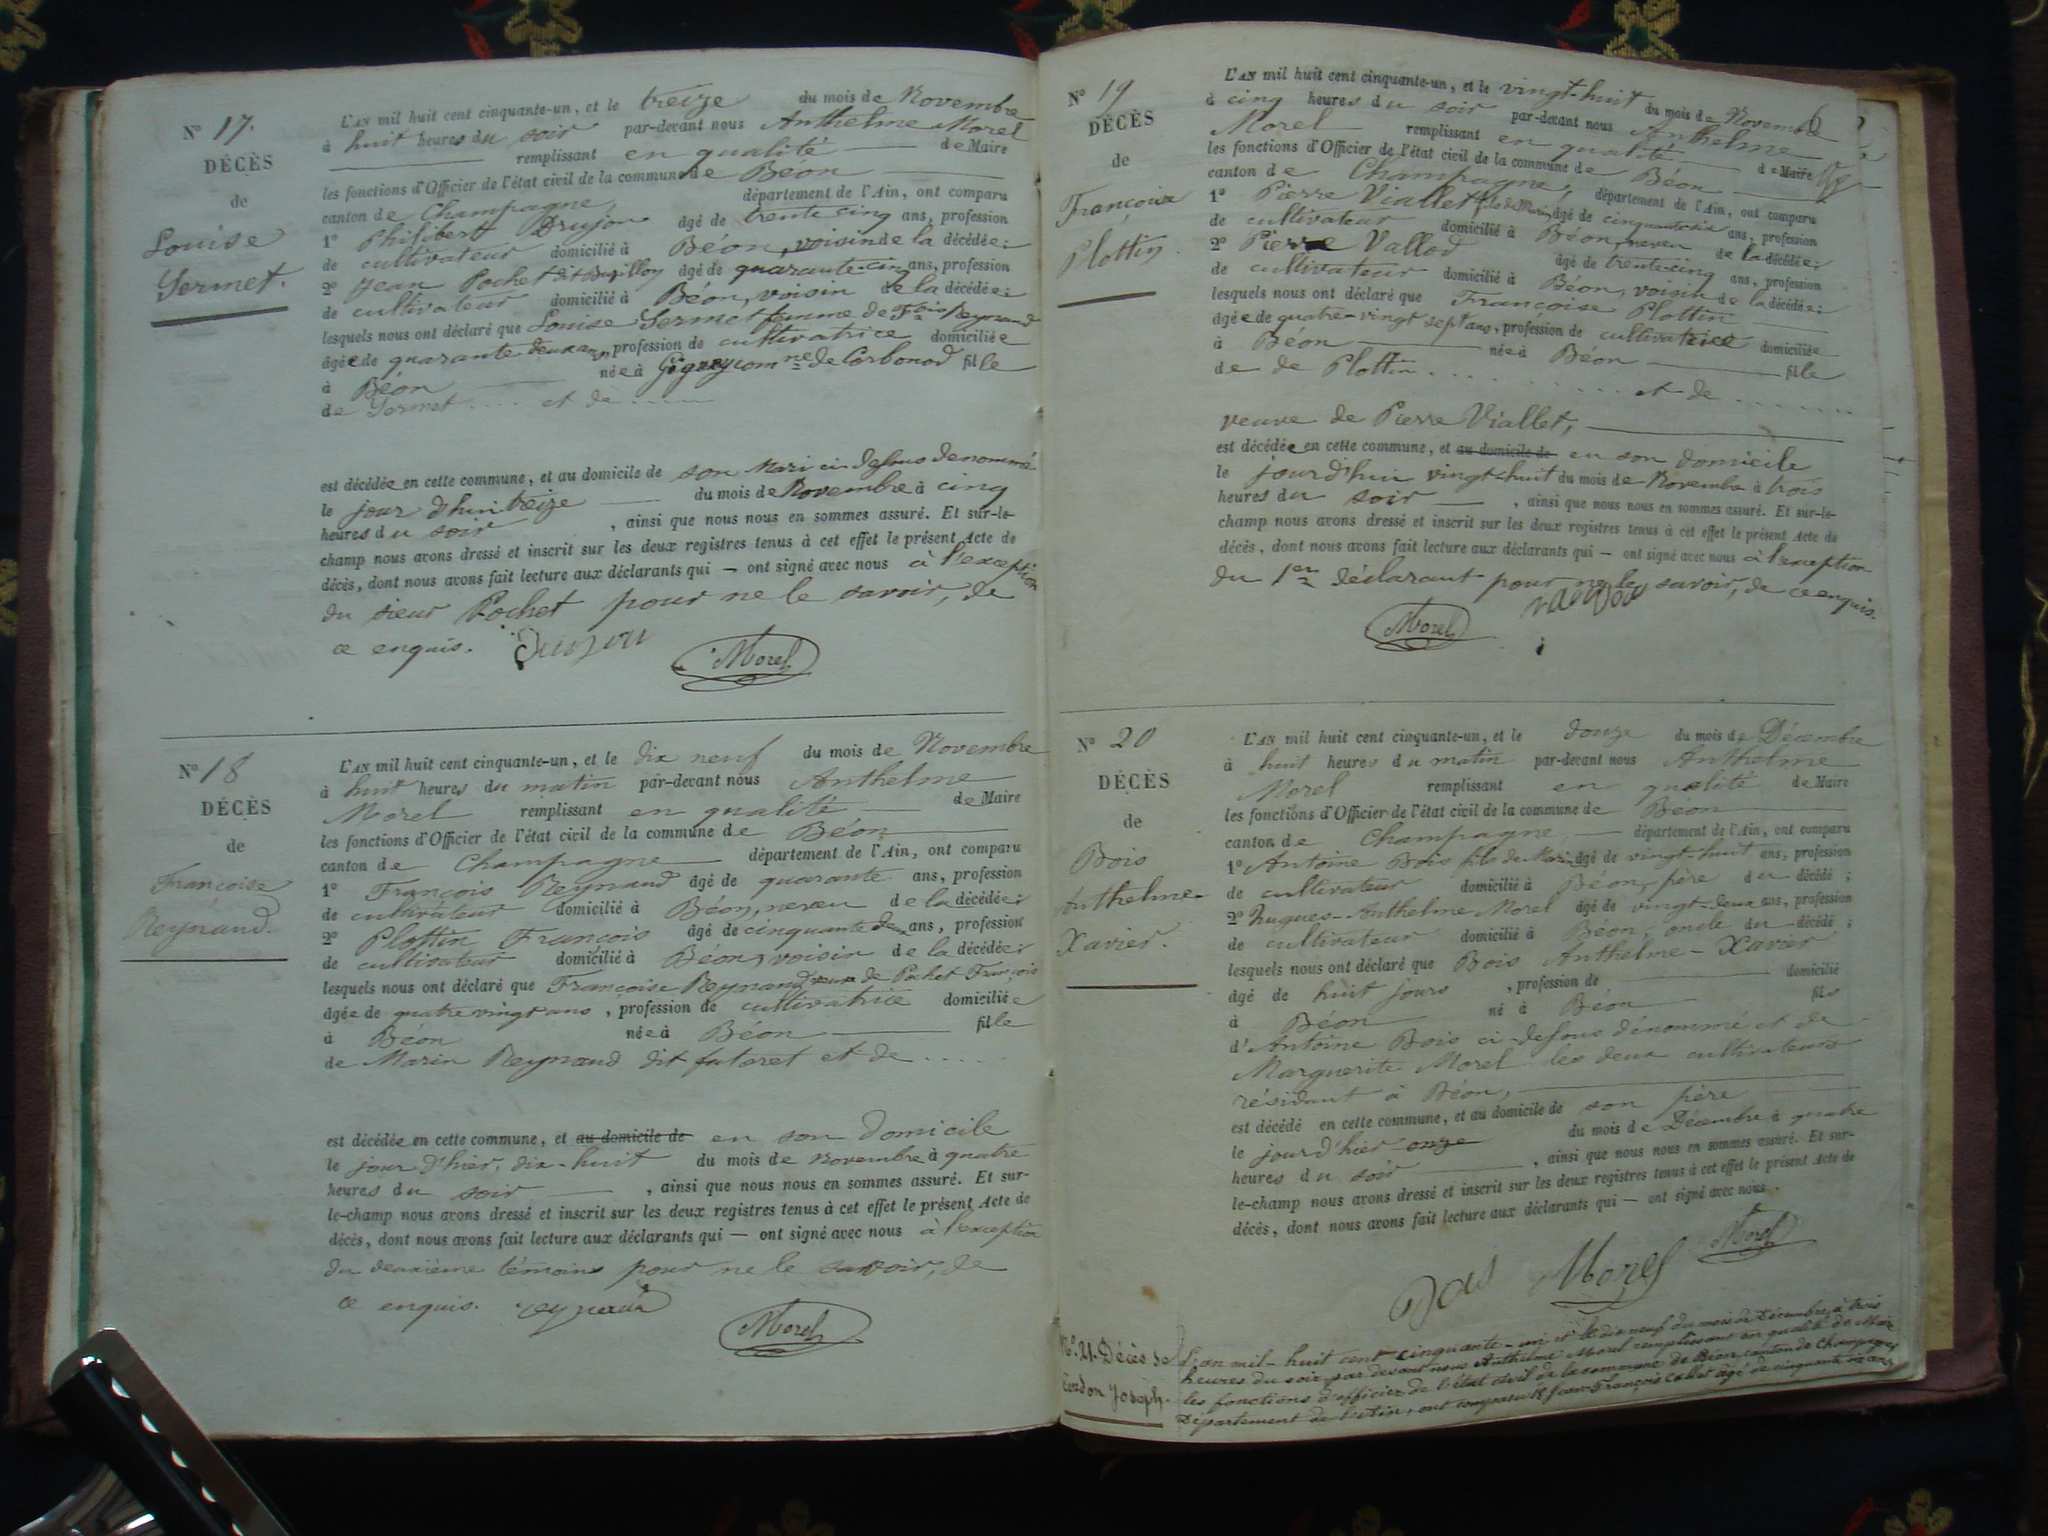 N° 17.
DÉCÈS
de
Louise
Sermet.
L'AN mil huit cent cinquante-un, et le treize du mois de Novembre
à huit heures du soir par-devant nous Anthelme Morel
remplissant en qualité de Maire
les fonctions d'Officier de l'état civil de la commune de Béon
canton de Champagne, département de l'Ain, ont comparu
1° Philibert Drujon âgé de trente cinq ans, profession
de cultivateur domicilié à Béon, voisin de la décédée;
2° Jean Pochet dit âgé de quarante-cinq ans, profession
de cultivateur domicilié à Béon, voisin de la décédée;
lesquels nous ont déclaré que Louise Sermet femme de Reynaud
âgée de quarante deux ans, profession de cultivatrice domiciliée
à Béon née à de Corbonod fille
de Sermet .... et de ......
est décédée en cette commune, et au domicile de son mari ci-dessus dénommé
le jour d'hui treize du mois de Novembre à cinq
heures du soir , ainsi que nous nous en sommes assuré. Et sur-le-
champ nous avons dressé et inscrit sur les deux registres tenus à cet effet le présent Acte de
décès, dont nous avons fait lecture aux déclarants qui — ont signé avec nous à l'exception
du sieur Pochet pour ne le savoir, de
ce enquis. Drujon Morel
N° 18
DÉCÈS
de
Françoise
Reynaud.
L'AN mil huit cent cinquante-un, et le dix neuf du mois de Novembre
à huit heures du matin par-devant nous Anthelme
Morel remplissant en qualité de Maire
les fonctions d'Officier de l'état civil de la commune de Béon
canton de Champagne département de l'Ain, ont comparu
1° François Reynaud âgé de quarante ans, profession
de cultivateur domicilié à Béon, neveu de la décédée;
2° Plottin François âgé de cinquante deux ans, profession
de cultivateur domicilié à Béon, voisin de la décédée;
lesquels nous ont déclaré que Françoise Reynaud veuve de Pochet François
âgée de quatre vingt ans, profession de cultivatrice domiciliée
à Béon née à Béon fille
de Marin Reynaud dit et de .....
est décédée en cette commune, et au domicile de en son domicile
le jour d'hier, dix-huit du mois de novembre à quatre
heures du soir , ainsi que nous nous en sommes assuré. Et sur-
le-champ nous avons dressé et inscrit sur les deux registres tenus à cet effet le présent Acte de
décès, dont nous avons fait lecture aux déclarants qui — ont signé avec nous à l'exception
du deuxième témoins pour ne le savoir, de
ce enquis. reynaud Morel
N° 19
DÉCÈS
de
Françoise
Plottin
L'AN mil huit cent cinquante-un, et le vingt-huit du mois de Novembre
à cinq heures du soir par-devant nous Anthelme
Morel remplissant en qualité de Maire
les fonctions d'Officier de l'état civil de la commune de Béon
canton de Champagne, département de l'Ain, ont comparu
1° Pierre Viallet fils de Marin, âgé de ans, profession
de cultivateur domicilié à Béon, neveu de la décédée;
2° Pierre Vallod âgé de trente-cinq ans, profession
de cultivateur domicilié à Béon, voisin de la décédée;
lesquels nous ont déclaré que Françoise Plottin
âgée de quatre-vingt sept ans, profession de cultivatrice domiciliée
à Béon née à Béon fille
de de Plottin ........ et de .......
veuve de Pierre Viallet,
est décédée en cette commune, et au domicile de en son domicile
le jourd'hui vingt-huit du mois de Novembre à trois
heures du soir , ainsi que nous nous en sommes assuré. Et sur-le-
champ nous avons dressé et inscrit sur les deux registres tenus à cet effet le présent Acte de
décès, dont nous avons fait lecture aux déclarants qui — ont signé avec nous à l'exception
du 1er déclarant pour ne le savoir, de ce enquis.
Morel
N° 20
DÉCÈS
de
Bois
Anthelme-
Xavier.
L'AN mil huit cent cinquante-un, et le douze du mois de Décembre
à huit heures du matin par-devant nous Anthelme
Morel remplissant en qualité de Maire
les fonctions d'Officier de l'état civil de la commune de Béon
canton de Champagne département de l'Ain, ont comparu
1° Antoine Bois fils de Marin âgé de vingt-huit ans, profession
de cultivateur domicilié à Béon, père du décédé;
2° Hugues-Anthelme Morel âgé de vingt-deux ans, profession
de cultivateur domicilié à Béon, oncle du décédé;
lesquels nous ont déclaré que Bois Anthelme-Xavier
âgé de huit jours , profession de domicilié
à Béon né à Béon fils
d'Antoine Bois ci-dessus dénommé et de
Marguerite Morel les deux cultivateurs
résidant à Béon,
est décédé en cette commune, et au domicile de son père
le jourd'hier onze du mois de Décembre à quatre
heures du soir , ainsi que nous nous en sommes assuré. Et sur-
le-champ nous avons dressé et inscrit sur les deux registres tenus à cet effet le présent Acte de
décès, dont nous avons fait lecture aux déclarants qui — ont signé avec nous.
Bois Morel Morel
N°. 21. Décès de
Cordon Joseph.
L'an mil-huit cent cinquante-un et le dix neuf du mois de Décembre, à trois
heures du soir par devant nous Anthelme Morel remplissant en qualité de Maire
les fonctions d'officier de l'état civil de la commune de Béon, canton de Champagne,
Département de l'Ain, ont comparu 1° Jean-François Callet âgé de cinquante ans,